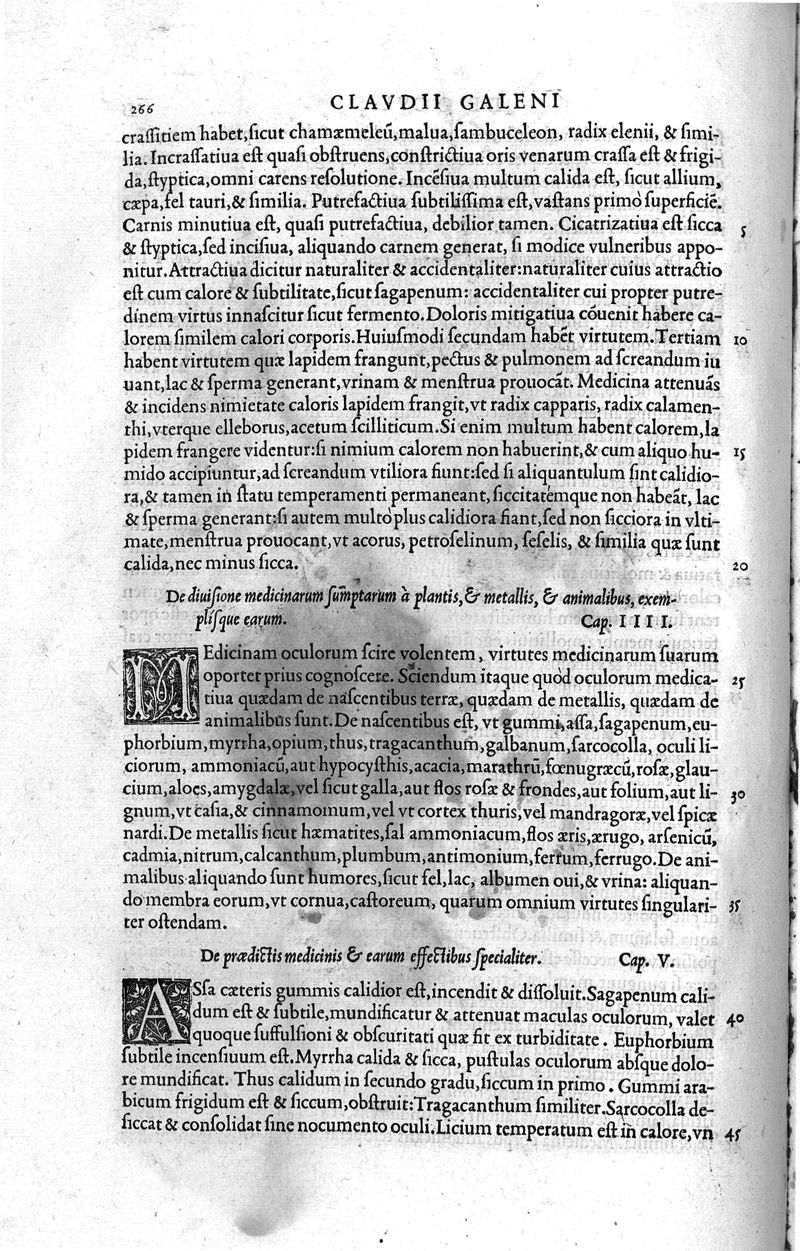 266 CLAVDII GALENI
craſſitiem habet,ſicut chamæmeleũ,malua,ſambuceleon, radix elenii, & ſimi-
lia. Incraſſatiua eſt quaſi obſtruens,conſtrictiua oris venarum craſſa eſt & frigi-
da,ſtyptica,omni carens reſolutione. Incẽſiua multum calida eſt, ſicut allium,
cæpa,fel tauri,& ſimilia. Putrefactiua ſubtiliſſima eſt,vaſtans primò ſuperficiẽ.
Carnis minutiua eſt, quaſi putrefactiua, debilior tamen. Cicatrizatiua eſt ſicca 5
& ſtyptica,ſed inciſiua, aliquando carnem generat, ſi modice vulneribus appo-
nitur.Attractiua dicitur naturaliter & accidentaliter:naturaliter cuius attractio
eſt cum calore & ſubtilitate,ſicut ſagapenum: accidentaliter cui propter putre-
dinem virtus innaſcitur ſicut fermento.Doloris mitigatiua cóuenit habere ca-
lorem ſimilem calori corporis.Huiuſmodi ſecundam habẽt virtutem.Tertiam 10
habent virtutem quæ lapidem frangunt,pectus & pulmonem ad ſcreandum iu
uant,lac & ſperma generant,vrinam & menſtrua prouocãt. Medicina attenuãs
& incidens nimietate caloris lapidem frangit,vt radix capparis, radix calamen-
thi,vterque elleborus,acetum ſcilliticum.Si enim multum habent calorem,la
pidem frangere videntur:ſi nimium calorem non habuerint,& cum aliquo hu- 15
mido accipiuntur,ad ſcreandum vtiliora fiunt:ſed ſi aliquantulum ſint calidio-
ra,& tamen in ſtatu temperamenti permaneant,ſiccitatémque non habeãt, lac
& ſperma generant:ſi autem multò plus calidiora fiant,ſed non ſicciora in vlti-
mate,menſtrua prouocant,vt acorus, petroſelinum, ſeſelis, & ſimilia quæ ſunt
calida,nec minus ſicca. 20
De diuiſione medicinarum ſumptarum à plantis,& metallis, & animalibus, exem-
plíſque earum. Cap. I I I I.
MEdicinam oculorum ſcire volentem, virtutes medicinarum ſuarum
oportet prius cognoſcere. Sciendum itaque quòd oculorum medica- 25
tiua quædam de naſcentibus terræ, quædam de metallis, quædam de
animalibus ſunt.De naſcentibus eſt, vt gummi,aſſa,ſagapenum,eu-
phorbium,myrrha,opium,thus,tragacanthum,galbanum,ſarcocolla, oculi li-
ciorum, ammoniacũ,aut hypocyſthis,acacia,marathrũ,fœnugræcũ,roſæ,glau-
cium,aloes,amygdalæ,vel ſicut galla,aut flos roſæ & frondes,aut folium,aut li- 30
gnum,vt caſia,& cinnamomum,vel vt cortex thuris,vel mandragoræ,vel ſpicæ
nardi.De metallis ſicut hæmatites,ſal ammoniacum,flos æris,ærugo, arſenicũ,
cadmia,nitrum,calcanthum,plumbum,antimonium,ferrum,ferrugo.De ani-
malibus aliquando ſunt humores,ſicut fel,lac, albumen oui,& vrina: aliquan-
do membra eorum,vt cornua,caſtoreum, quarum omnium virtutes ſingulari- 35
ter oſtendam.
De prædictis medicinis & earum effectibus ſpecialiter. Cap. V.
ASſa cæteris gummis calidior eſt,incendit & diſſoluit.Sagapenum cali-
dum eſt & ſubtile,mundificat & attenuat maculas oculorum, valet 40
quoque ſuffuſioni & obſcuritati quæ fit ex turbiditate. Euphorbium
ſubtile incenſiuum eſt.Myrrha calida & ſicca, puſtulas oculorum abſque dolo-
re mundificat. Thus calidum in ſecundo gradu,ſiccum in primo. Gummi ara-
bicum frigidum eſt & ſiccum,obſtruit:Tragacanthum ſimiliter.Sarcocolla de-
ſiccat & conſolidat ſine nocumento oculi.Licium temperatum eſt in calore,vn 45